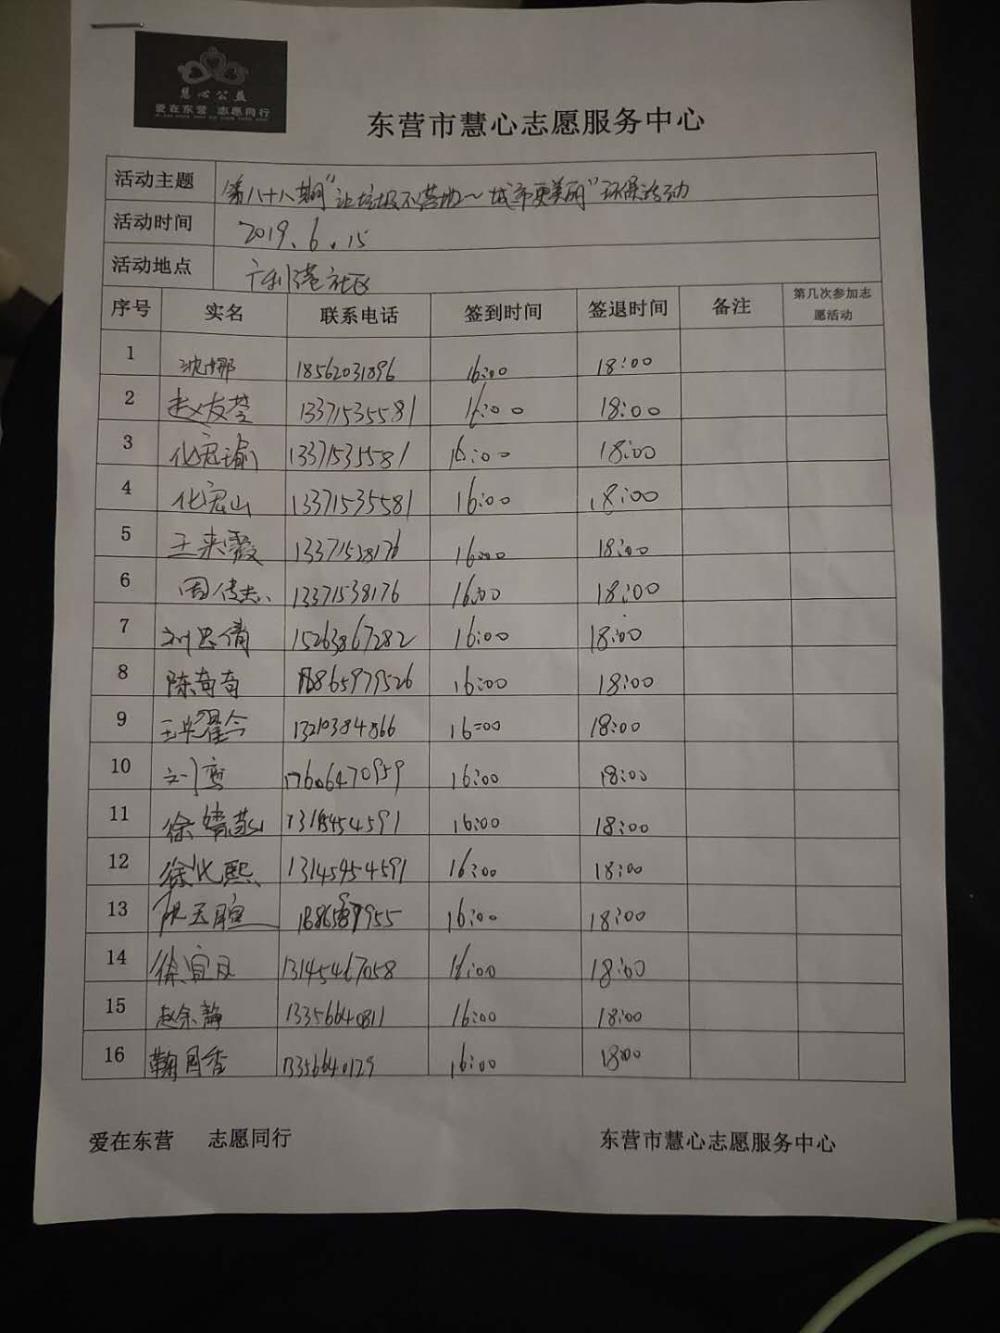 慧心公益
爱在东营 志愿同行
东营市慧心志愿服务中心
活动主题 第八十八期"让垃圾不落地~城市更美丽"环保活动
活动时间 2019.6.15
活动地点 广利港社区
序号 实名 联系电话 签到时间 签退时间 备注 第几次参加志愿活动
1 沈娜 18562031896 16:00 18:00
2 赵友苓 13371535581 16:00 18:00
3 化宏瑜 13371535581 16:00 18:00
4 化宏山 13371535581 16:00 18:00
5 王来霞 13371538176 16:00 18:00
6 周传 13371538176 16:00 18:00
7 刘思倩 15263867282 16:00 18:00
8 陈奇奇 18865979526 16:00 18:00
9 王 13210384866 16:00 18:00
10 刘 17606470959 16:00 18:00
11 徐婧 16:00 18:00
12 徐 熙 13145454591 16:00 18:00
13 16:00 18:00
14 徐宜 13145467058 16:00 18:00
15 赵余静 13356640811 16:00 18:00
16 鞠月香 13356640129 16:00 18:00
爱在东营 志愿同行 东营市慧心志愿服务中心